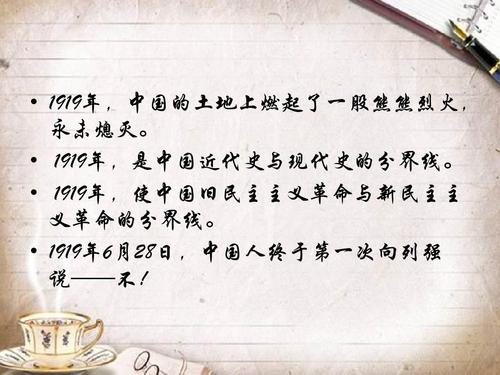 • 1919年，中国的土地上燃起了一股熊熊烈火，
永未熄灭。
• 1919年，是中国近代史与现代史的分界线。
• 1919年，使中国旧民主主义革命与新民主主
义革命的分界线。
• 1919年6月28日，中国人终于第一次向列强
说——不！